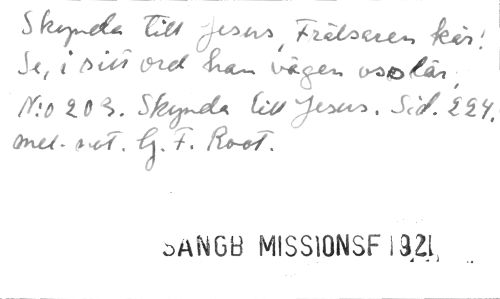 Skynda till Jesus, Frälsaren kär!
Se, i sitt ord han vägen oss lär,
N:o 203. Skynda till Jesus. Sid. 224.
mel. not. G. F. Root.
SANGB MISSIONSF 1921